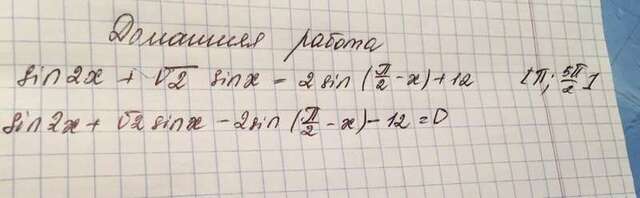 Домашняя работа
sin2x + √2 sinx = 2sin(π/2 - x) + 12 [π; 5π/2]
sin2x + √2 sinx - 2sin(π/2 - x) - 12 = 0